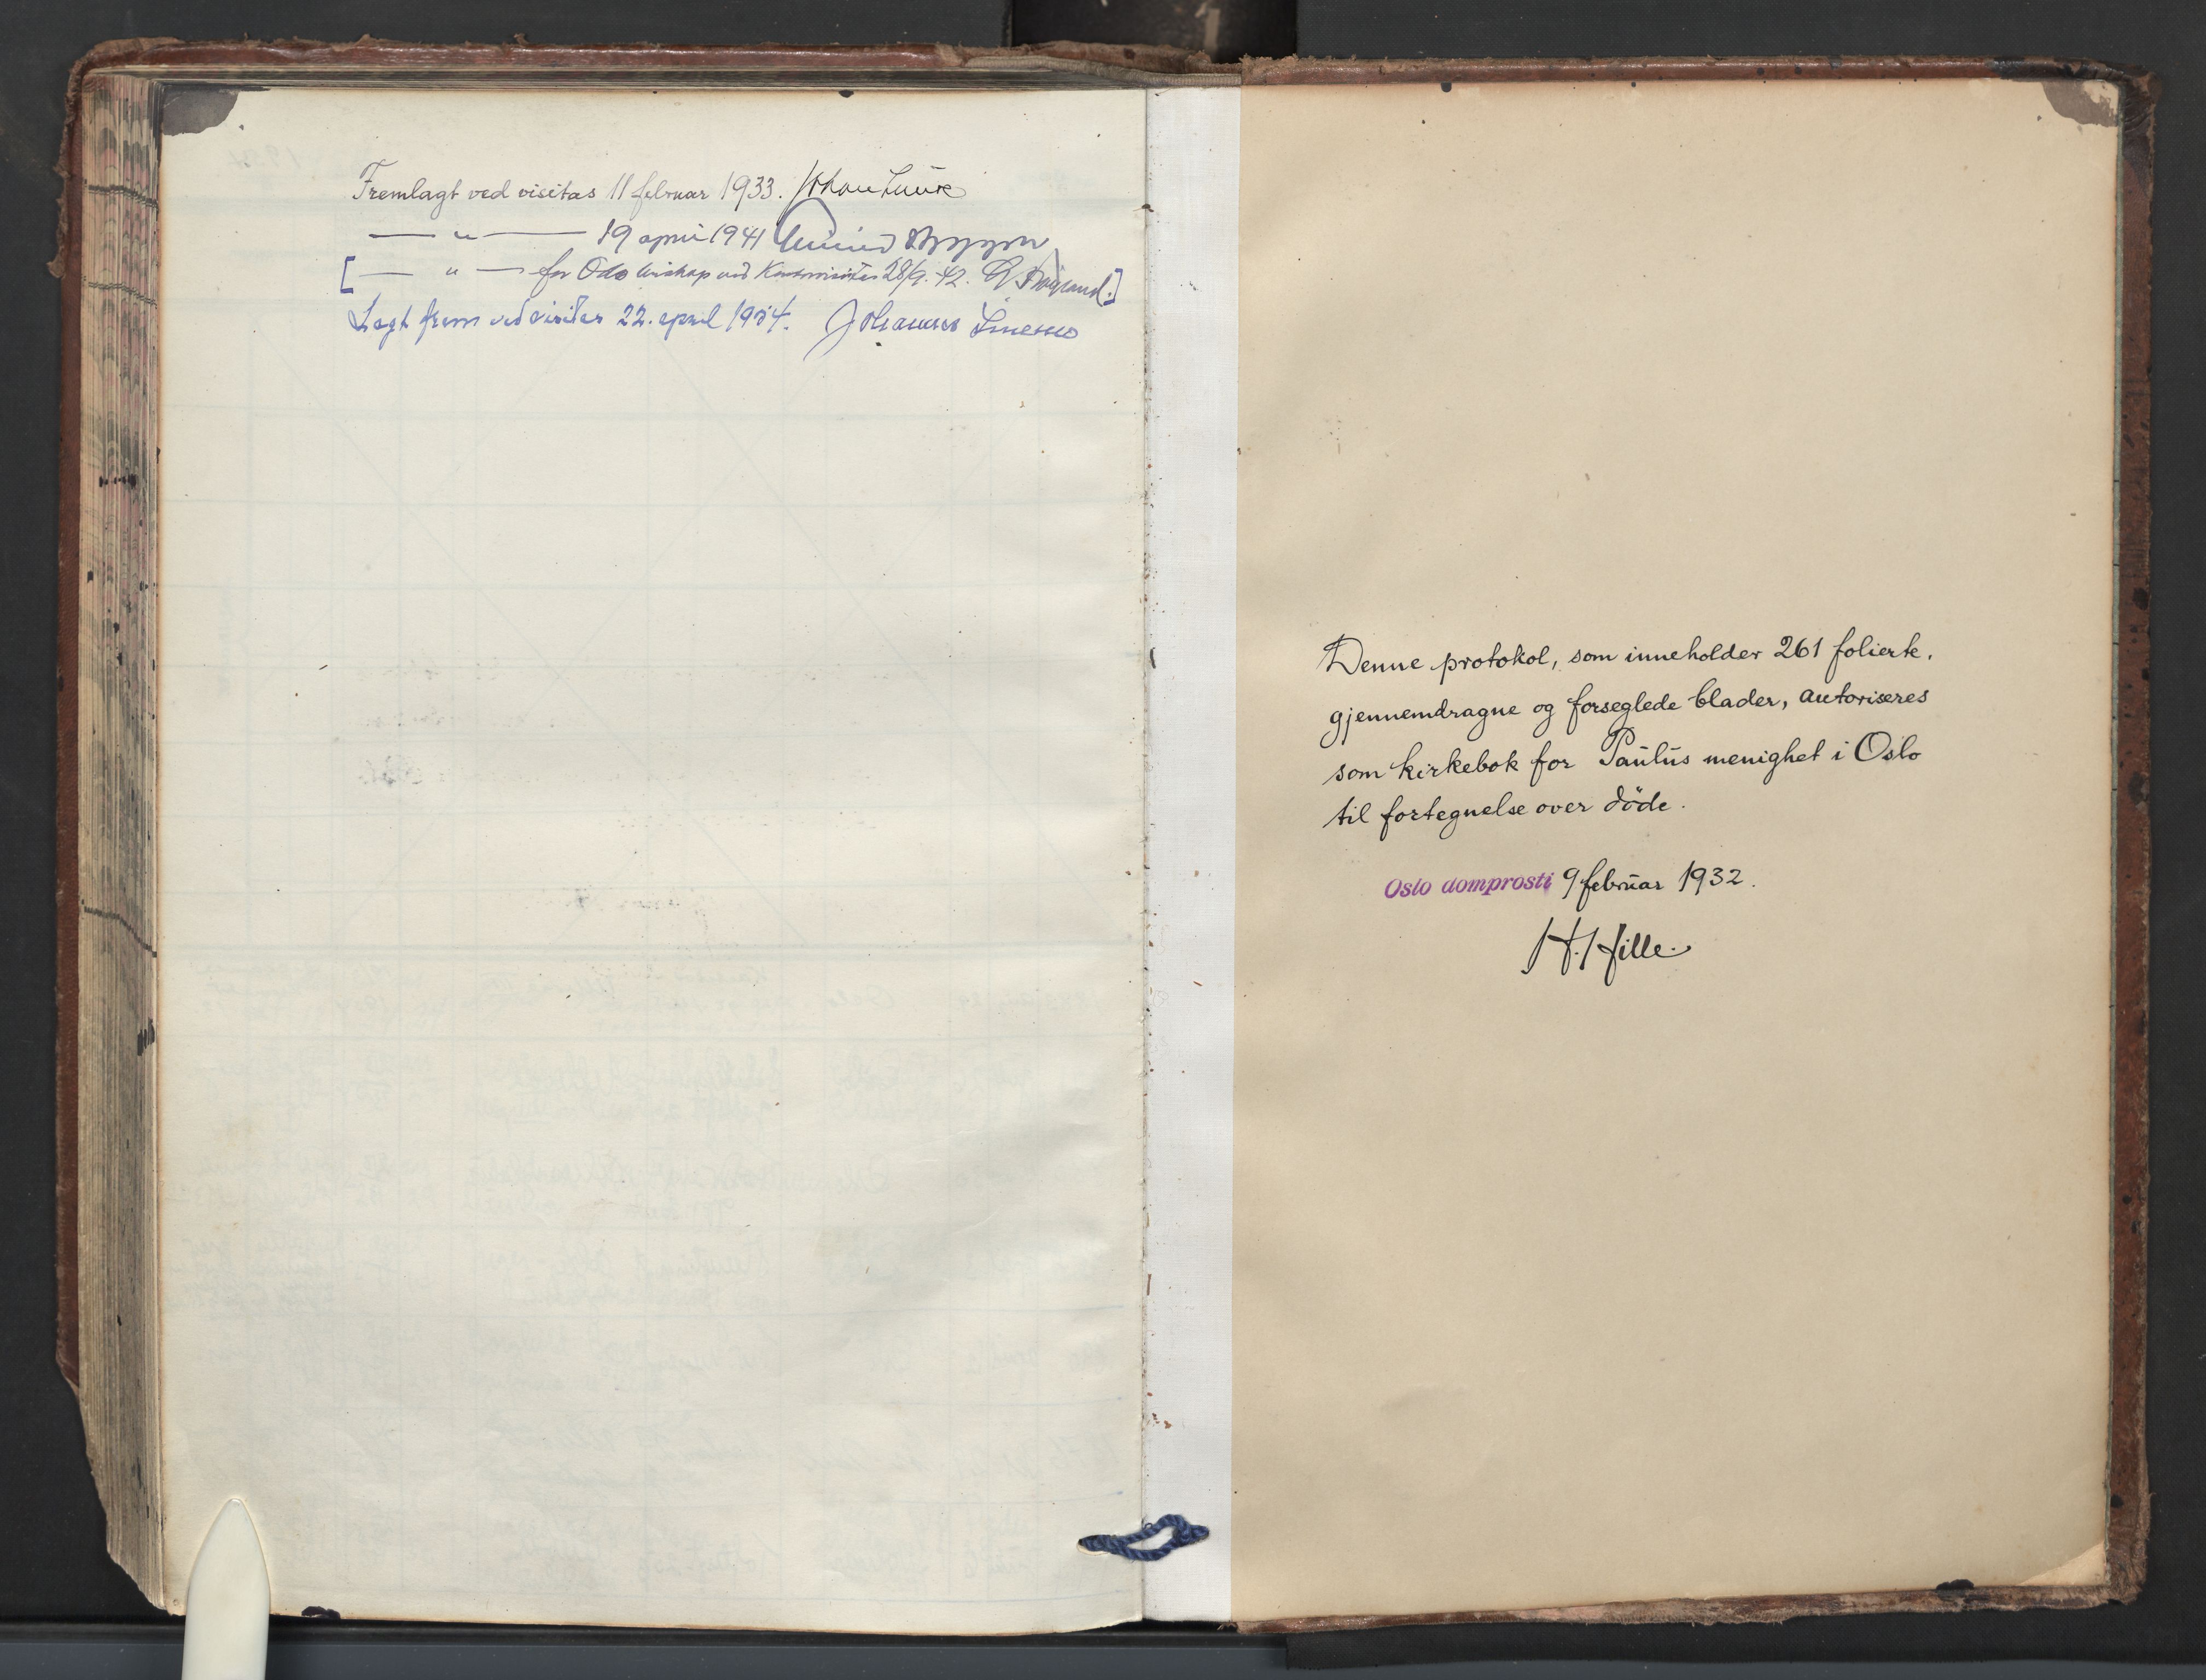 Fremlagt ved visitas 11 februar 1933. Johan Lunde
— „ — 19 april 1941
[— „ — for 28/9. 42.
Lagt frem ved visitas 22. april 1954. Johannes Smemo
Denne protokol, som inneholder 261 folierte,
gjennemdragne og forseglede blader, autoriseres
som kirkebok for Paulus menighet i Oslo
til fortegnelse over døde.
Oslo domprosti 9 februar 1932.
H. Hille